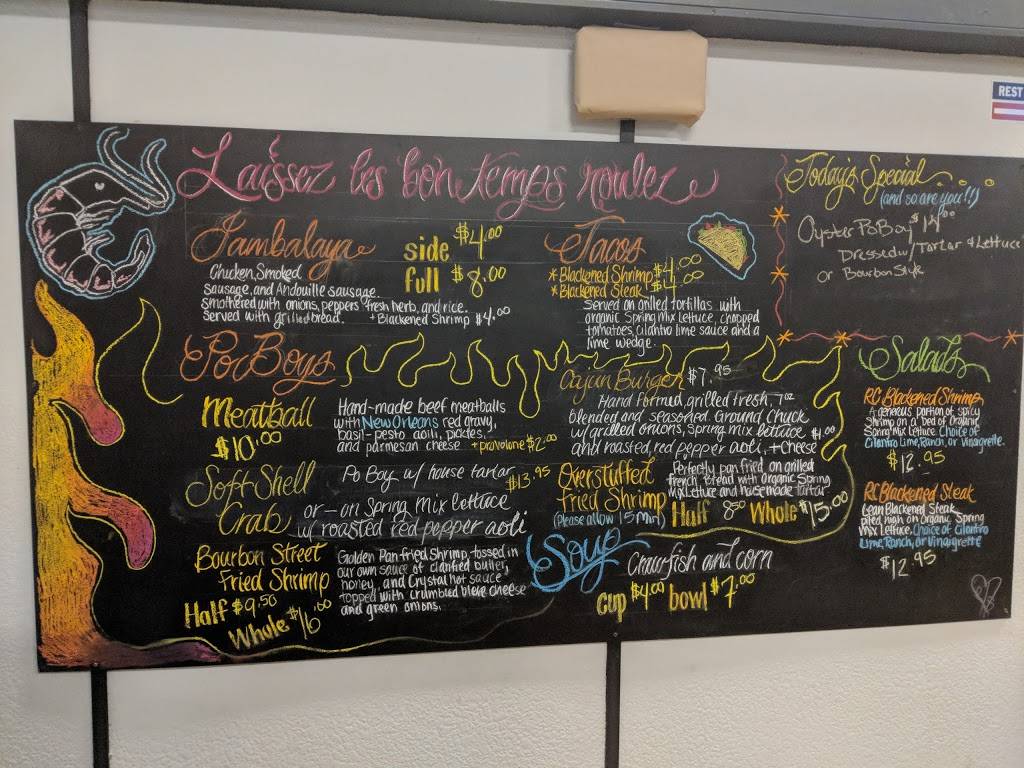 REST
Laissez les bon temps roulez
Jambalaya
side $4.00
full $8.00
Chicken, Smoked
Sausage, and Andouille sausage
smothered with onions, peppers fresh herb, and rice.
Served with grilled bread. +Blackened Shrimp $4.00
Tacos
*Blackened Shrimp $4.00
*Blackened Steak $4.00
Served on grilled tortillas with
organic Spring Mix Lettuce, chopped
tomatoes, cilantro lime sauce and a
lime wedge.
Today's Special
(and so are you!!)
Oyster PoBoy $14.00
Dressed w/Tartar & Lettuce
or Bourbon Style
Po Boys
Meatball
$10.00
Hand-made beef meatballs
with New Orleans red gravy,
basil-pesto aoili, pickles,
and parmesan cheese +provolone $2.00
Soft Shell
Crab
Po Boy w/ house tartar $13.95
or-on Spring Mix lettuce
w/ roasted red pepper aoli
Bourbon Street
Fried Shrimp
Half $9.50
Whole $16.00
Golden Pan fried shrimp, tossed in
our own sauce of clarified butter,
honey, and Crystal hot sauce
topped with crumbled bleu cheese
and green onions.
Cajun Burger $7.95
Hand formed, grilled fresh, 7oz
blended and seasoned Ground Chuck
w/ grilled onions, spring mix lettuce
and roasted red pepper aoli, +Cheese $1.00
Overstuffed
Fried Shrimp
(Please allow 15 Min)
Perfectly pan fried on grilled
french bread with Organic Spring
Mix Lettuce and housemade tartar
Half 8.50 Whole $15.00
Soup
Crawfish and corn
cup $4.00 bowl $7.00
Salads
RC Blackened Shrimp
A generous portion of spicy
shrimp on a bed of Organic
Spring Mix Lettuce. Choice of
Cilantro Lime, Ranch, or Vinaigrette.
$12.95
RC Blackened Steak
Lean Blackened Steak
piled high on Organic Spring
Mix Lettuce. Choice of Cilantro
Lime, Ranch, or Vinaigrette
$12.95